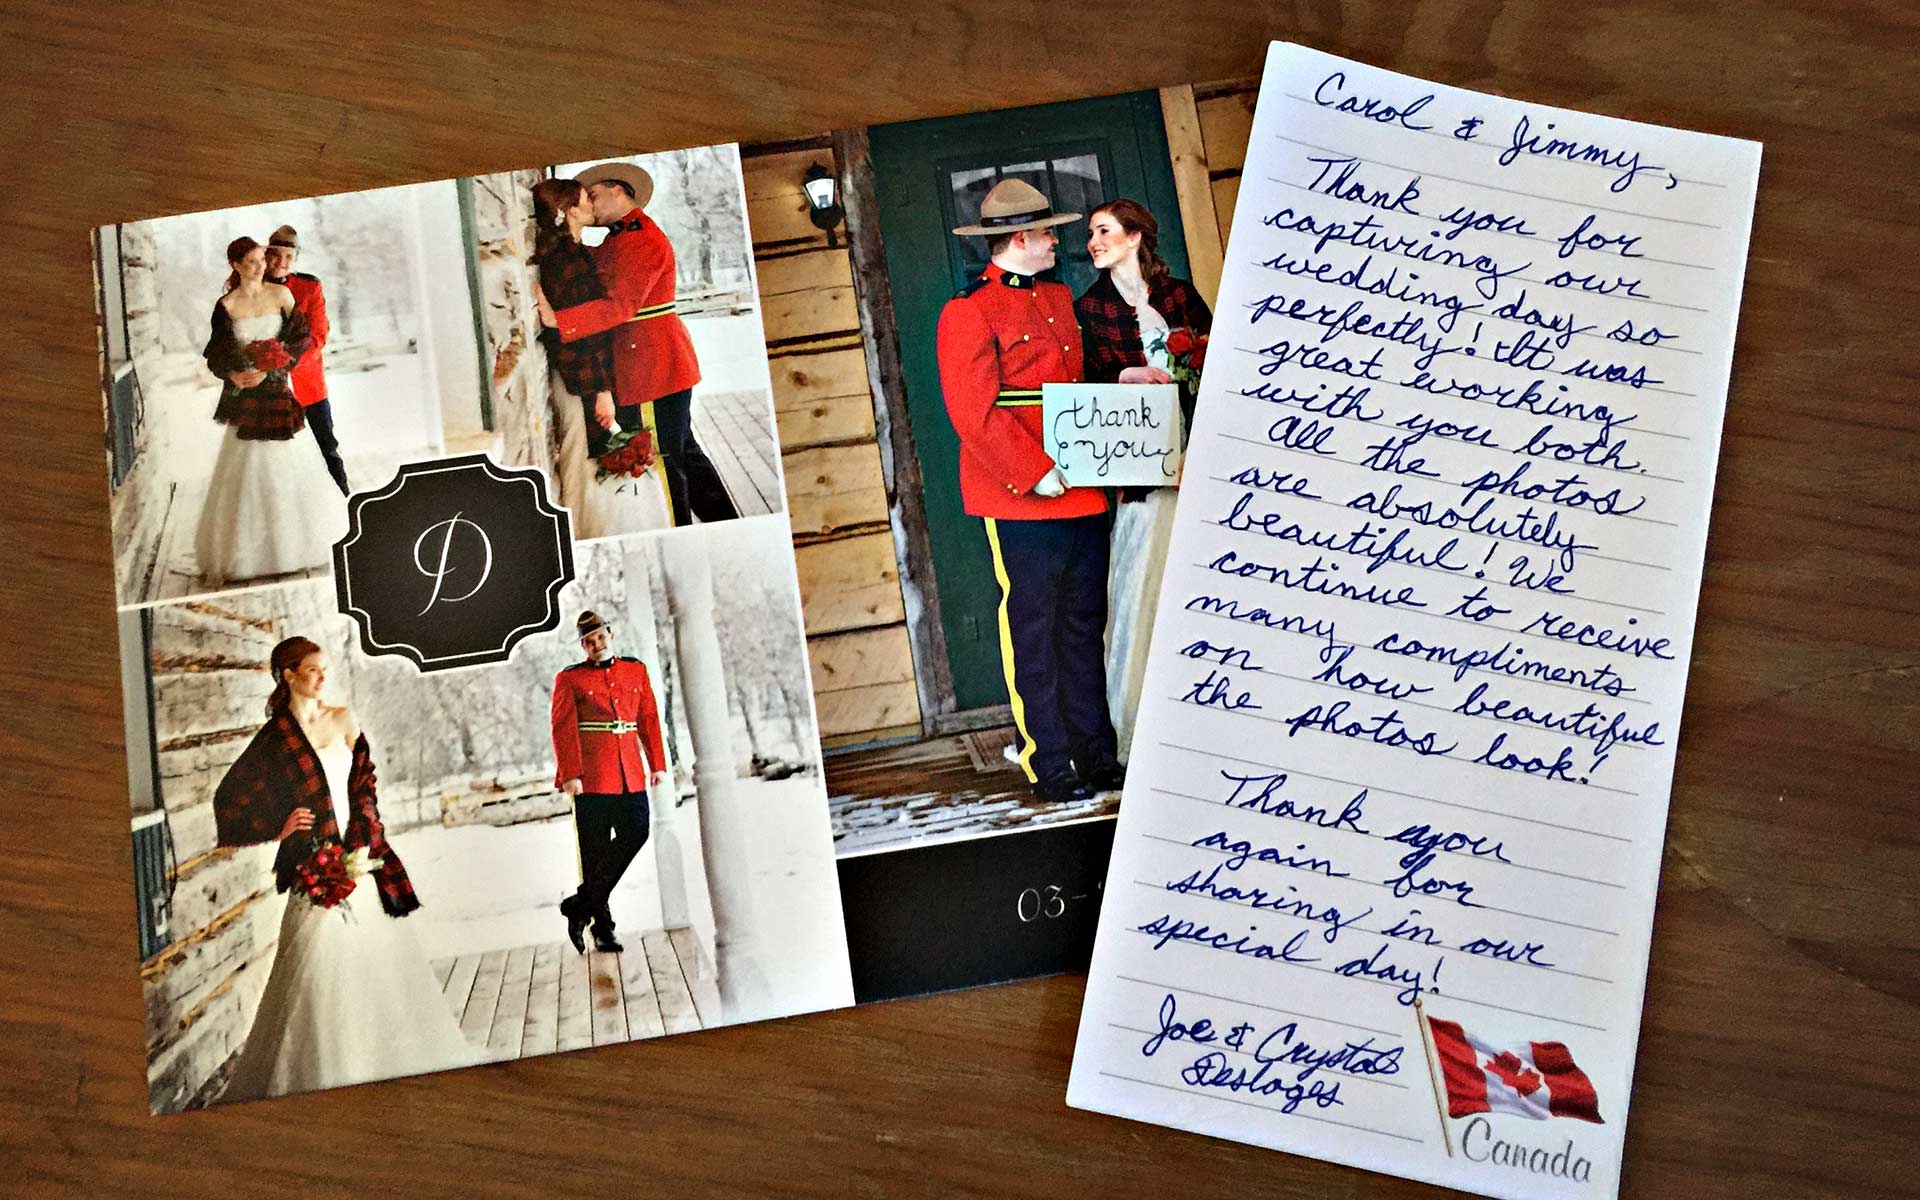 D
thank
you
03-
Carol & Jimmy,
Thank you for
capturing our
wedding day so
perfectly! It was
great working
with you both.
All the photos
are absolutely
beautiful! We
continue to receive
many compliments
on how beautiful
the photos look!
Thank you
again for
sharing in our
special day!
Joe & Crystal
Desloges
Canada